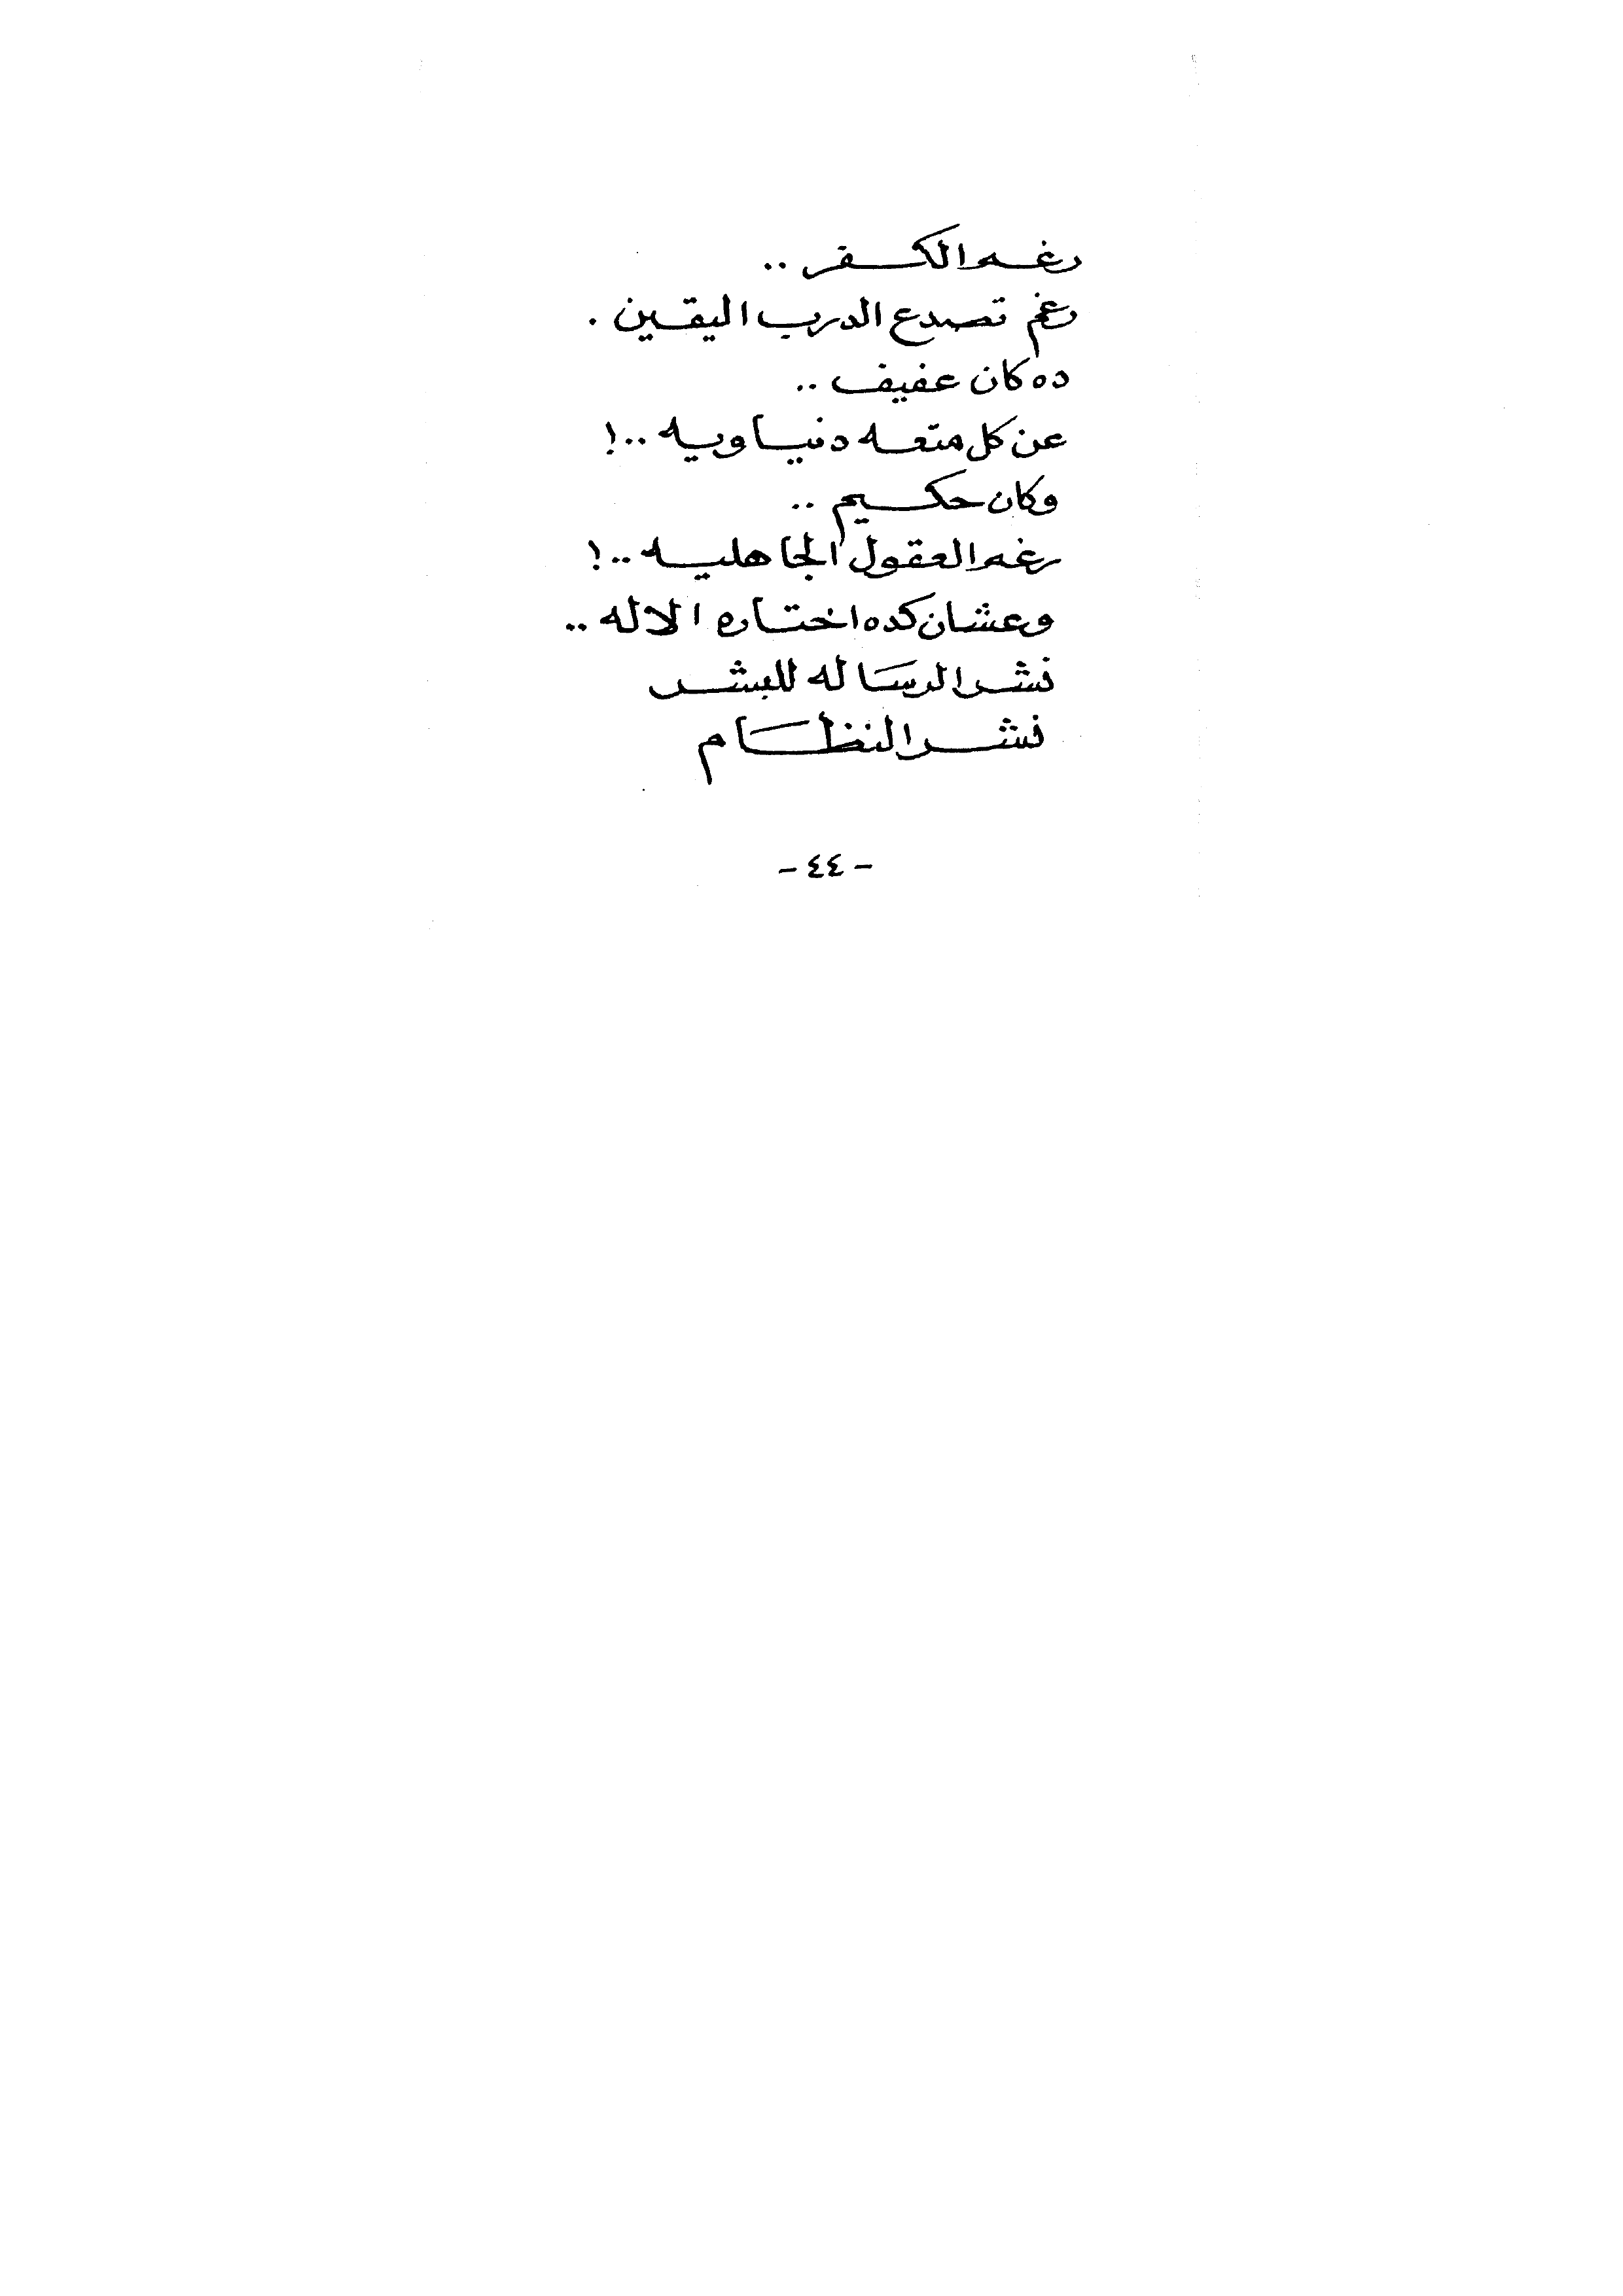 رغم الكفر ..
رغم تصدع الدرب اليقين .
ده كان عفيف ..
عن كل متعه دنياويه ..!
وكان حكيم ..
رغم العقول الجاهليه ..!
وعشان كده اختاره الاله ..
نشر الرساله للبشر
نشر النظام
- ٤٤ -